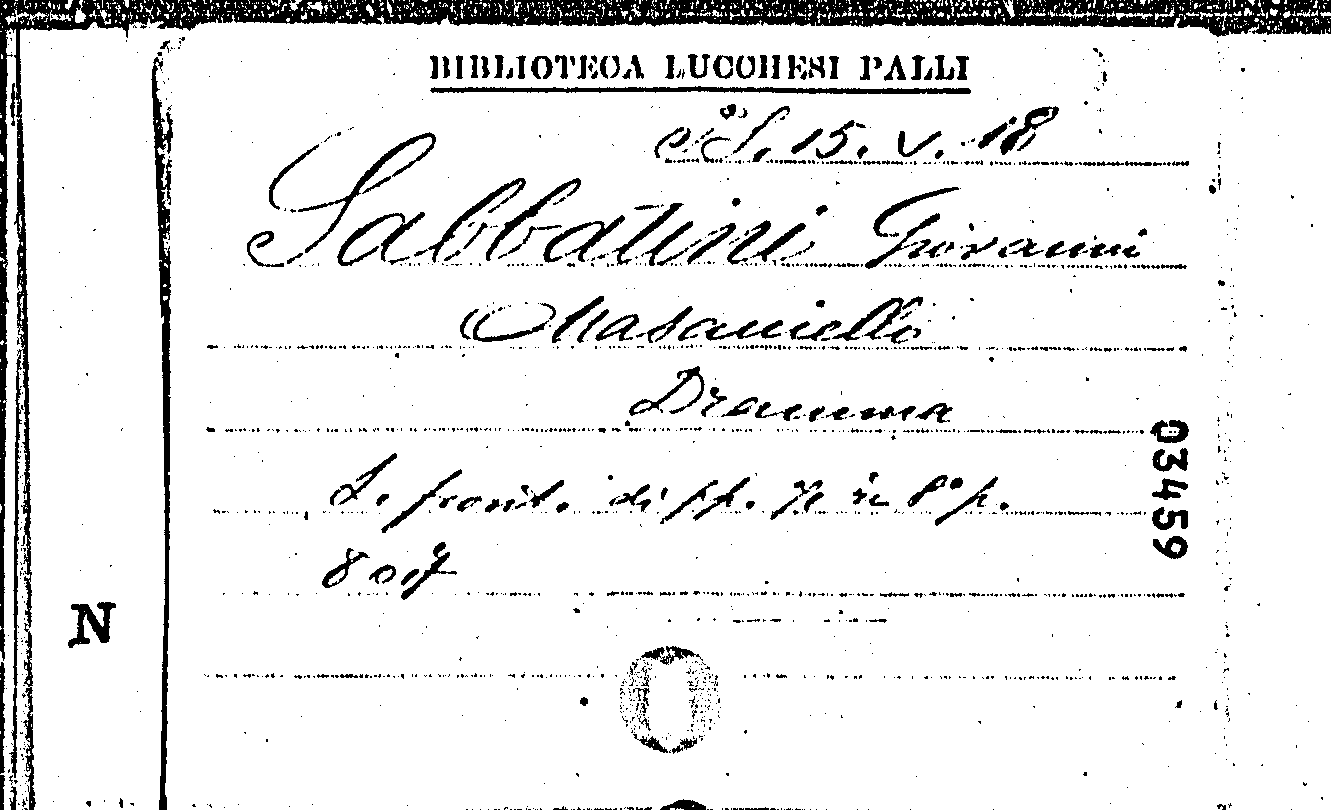 BIBLIOTECA LUCCHESI PALLI
S. 15. V. 18
Sabbatini Giovanni
Masaniello
Dramma
S. front. di pp. in 8° p.
03459
N